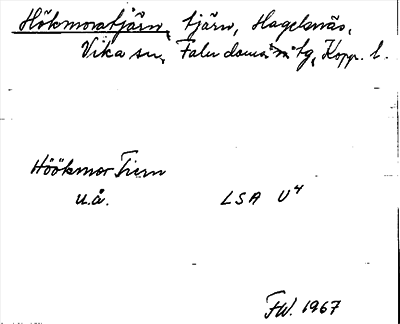 Hökmoratjärn, tjärn, Hagelsnäs,
Vika sn, Falu doms. tg, Kopp. l.
Höökmor Tiern
u.å. LSA U4
FW. 1967